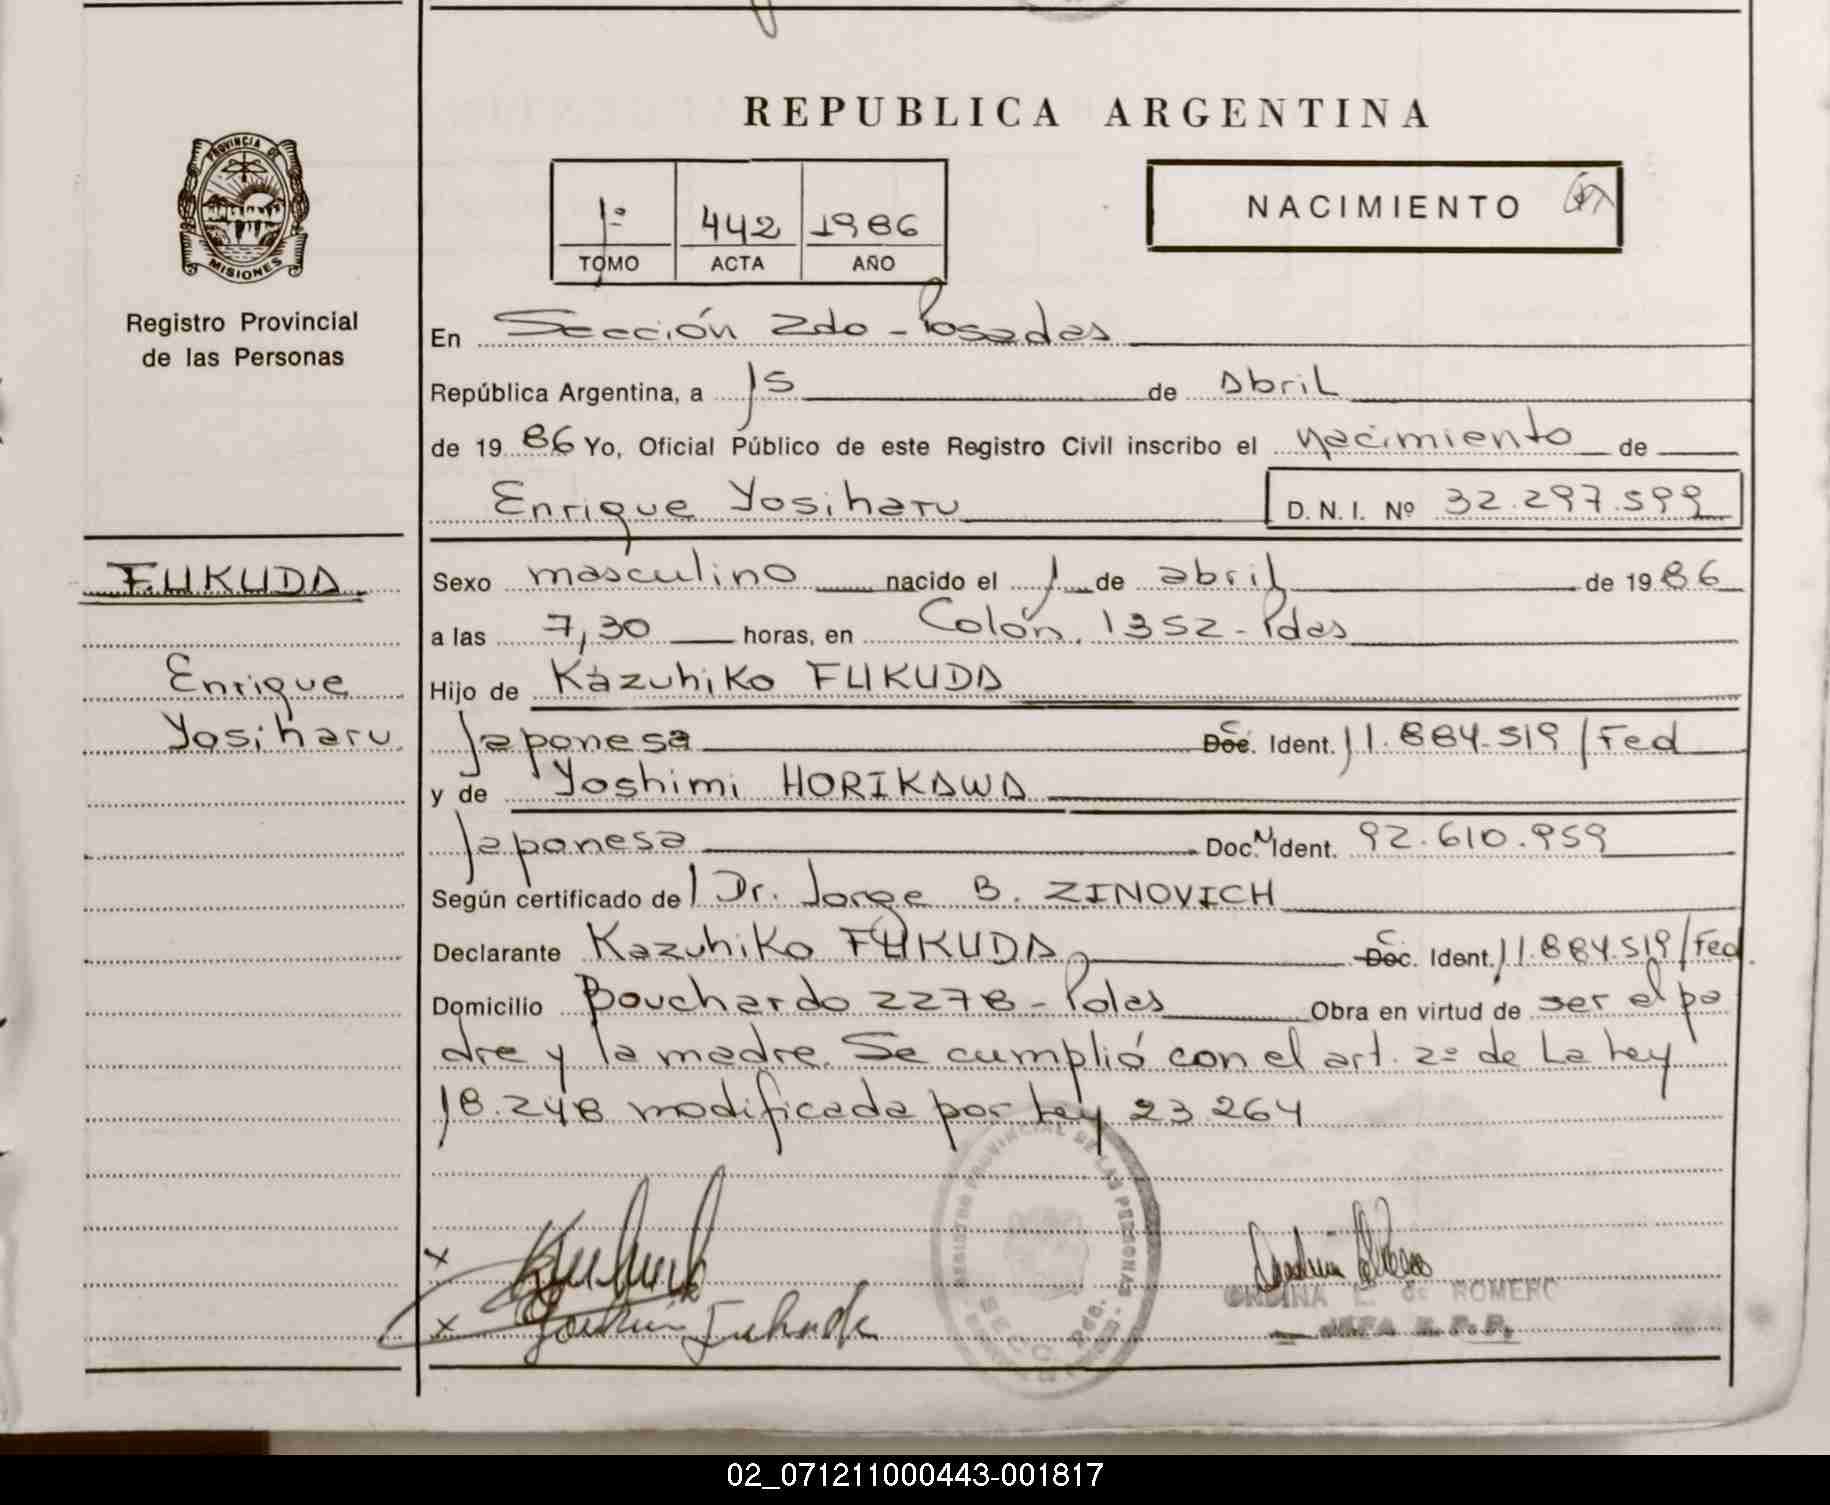 REPUBLICA ARGENTINA
PROVINCIA DE
MISIONES
Registro Provincial
de las Personas
1º 442 1986
TOMO ACTA AÑO
NACIMIENTO
En Sección 2do - Posadas
República Argentina, a 15 de abril
de 1986 Yo, Oficial Público de este Registro Civil inscribo el nacimiento de
Enrique Yosiharu D.N.I. Nº 32.297.599
FUKUDA
Enrique
Yosiharu
Sexo masculino nacido el 1 de abril de 1986
a las 7,30 horas, en Colón, 1352 - Pdas
Hijo de Kazuhiko FUKUDA
Japonesa Doc. Ident. 11.884.519/Fed
y de Yoshimi HORIKAWA
Japonesa Doc. N Ident. 92.610.959
Según certificado de Dr. Jorge B. ZINOVICH
Declarante Kazuhiko FUKUDA Doc. C. Ident. 11.884.519/Fed.
Domicilio Bouchardo 2278 - Pdas Obra en virtud de ser el pa
dre y la madre. Se cumplió con el art. 2º de La Ley
18.248 modificada por Ley 23.264
REGISTRO PROVINCIAL DE LAS PERSONAS
SECC. Pdas.
x
x
L. de ROMERO
JEFA
02_071211000443-001817